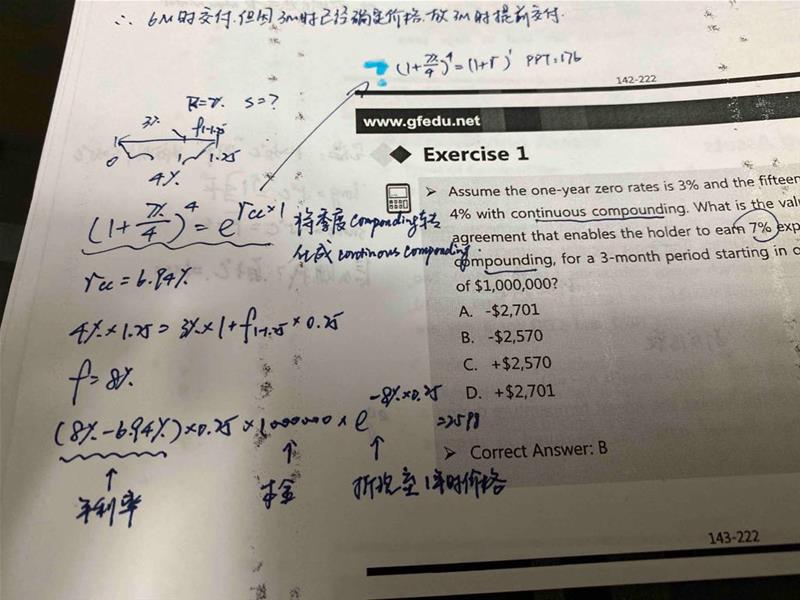 ∴ 6M时交付.但因3M时已经确定价格.故3M时提前交付.
? (1+7%/4)^4 = (1+r)^1 PPT:176
142-222
R=7%. S=?
3% f1-1.25
0 1 1.25
4%
(1+7%/4)^4 = e^rcc×1 将季度componding转
化成continous componding.
rcc = 6.94%
4%×1.25 = 3%×1+f1-1.25×0.25
f = 8%
(8%-6.94%)×0.25×1000000×e^-8%×0.25 =2598
↑ ↑ ↑
年利率 本金 折现至1年时价格
www.gfedu.net
Exercise 1
➢ Assume the one-year zero rates is 3% and the fifteen
4% with continuous compounding. What is the val
agreement that enables the holder to earn 7% exp
compounding, for a 3-month period starting in
of $1,000,000?
A. -$2,701
B. -$2,570
C. +$2,570
D. +$2,701
➢ Correct Answer: B
143-222